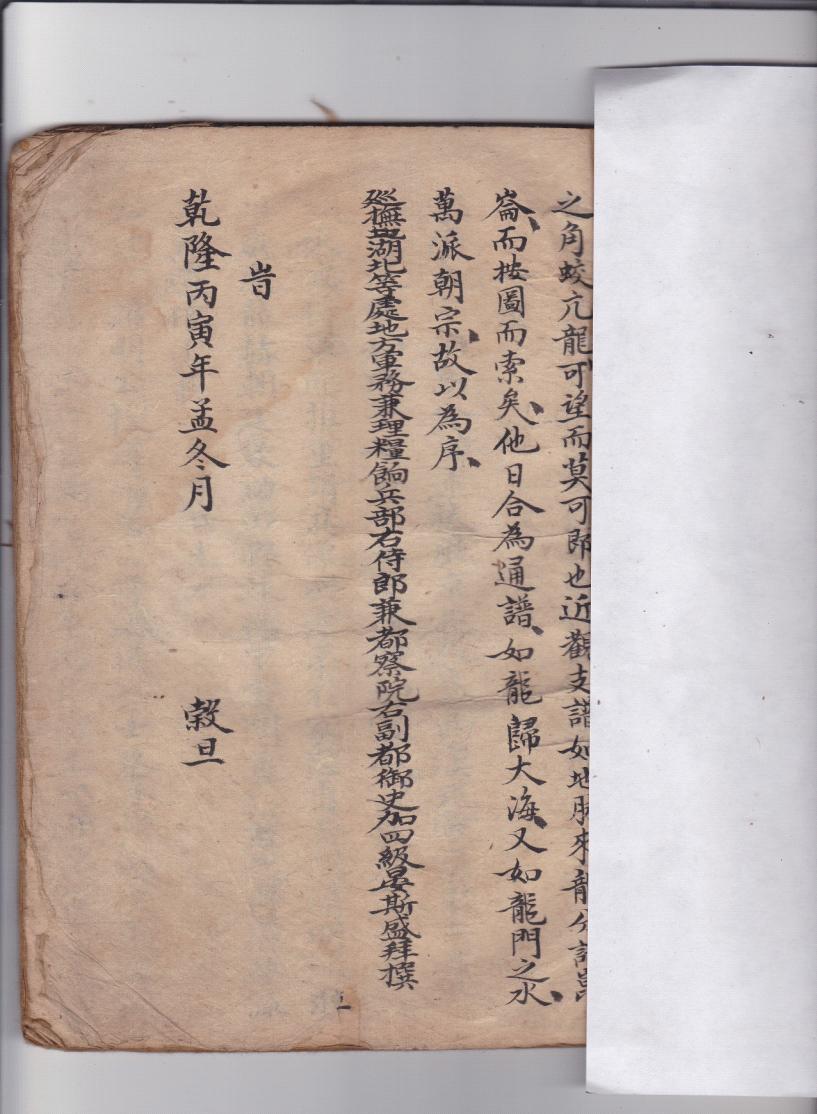 之角蛟亢龍可望而莫可即也近觀支譜如地脉來龍分
崙、而按圖而索矣、他日合為通譜、如龍歸大海、又如龍門之水、
萬派朝宗、故以為序、
廵撫湖北等處地方軍務兼理糧餉兵部右侍郎兼都察院右副都御史加四級晏斯盛拜撰
旹
乾隆丙寅年孟冬月 榖旦